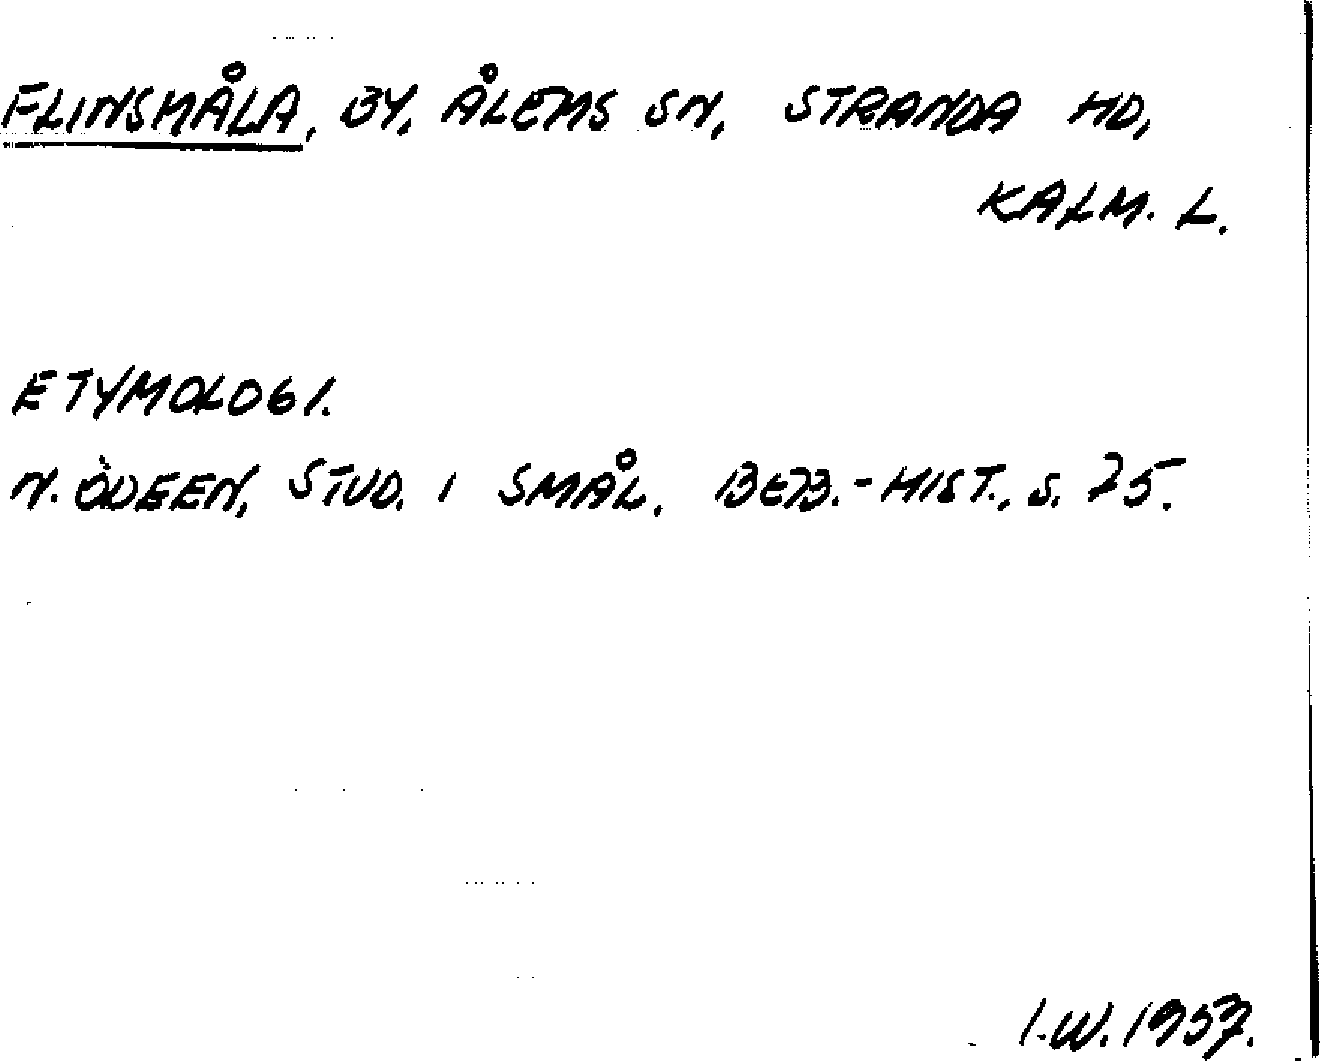 FLINSMÅLA, BY, ÅLEMS SN, STRANDA HD,
KALM. L.
ETYMOLOGI.
N. ÖDEEN, STUD. I SMÅL. BEB.-HIST., S. 25.
I.W. 1957.